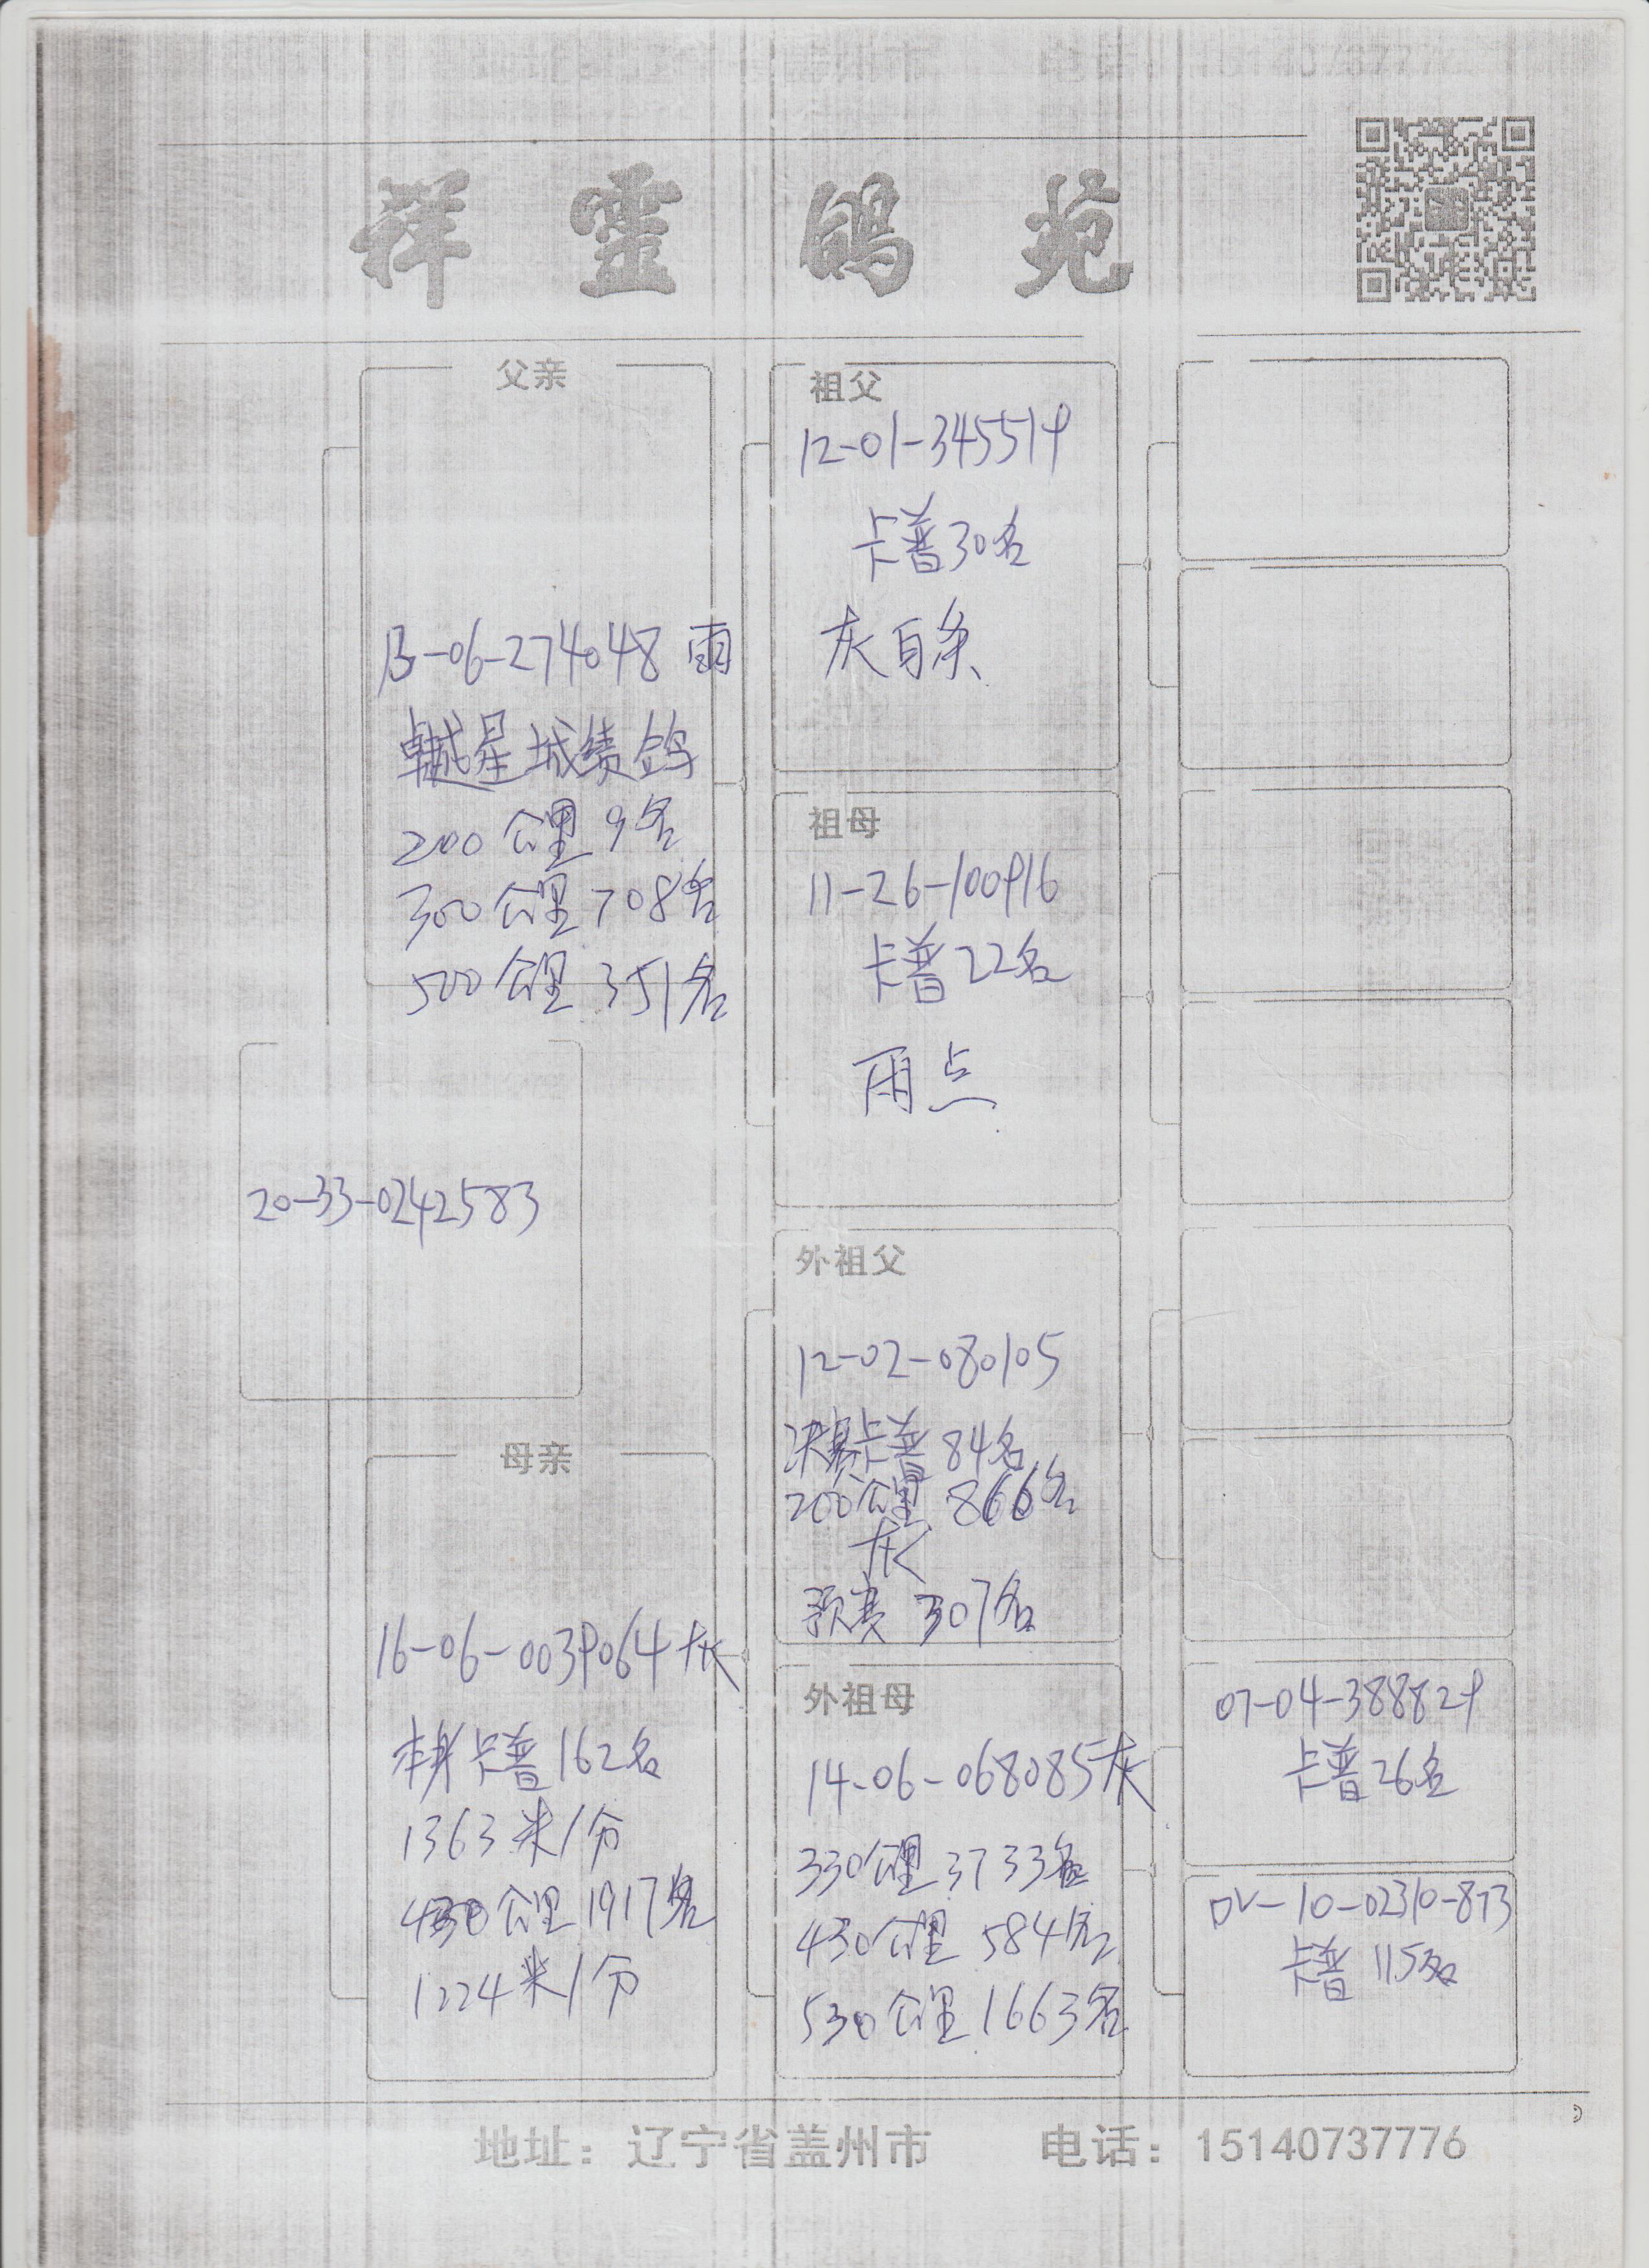 祥靈鴿苑
父亲
13-06-274048 雨
卓越星城绩鸽
200公里9名
300公里708名
500公里351名
祖父
12-01-345519
卡普30名
灰白条
祖母
11-26-100916
卡普22名
雨点
20-33-0242583
母亲
16-06-0039064灰
本身卡普162名
1363米/分
430公里1917名
1224米/分
外祖父
12-02-080105
决赛卡普84名
200公里 866名
灰
预赛 307名
外祖母
14-06-068085灰
330公里3733名
430公里 584名
530公里1663名
07-04-388829
卡普26名
DV-10-02310-873
卡普 115名
地址：辽宁省盖州市 电话：15140737776